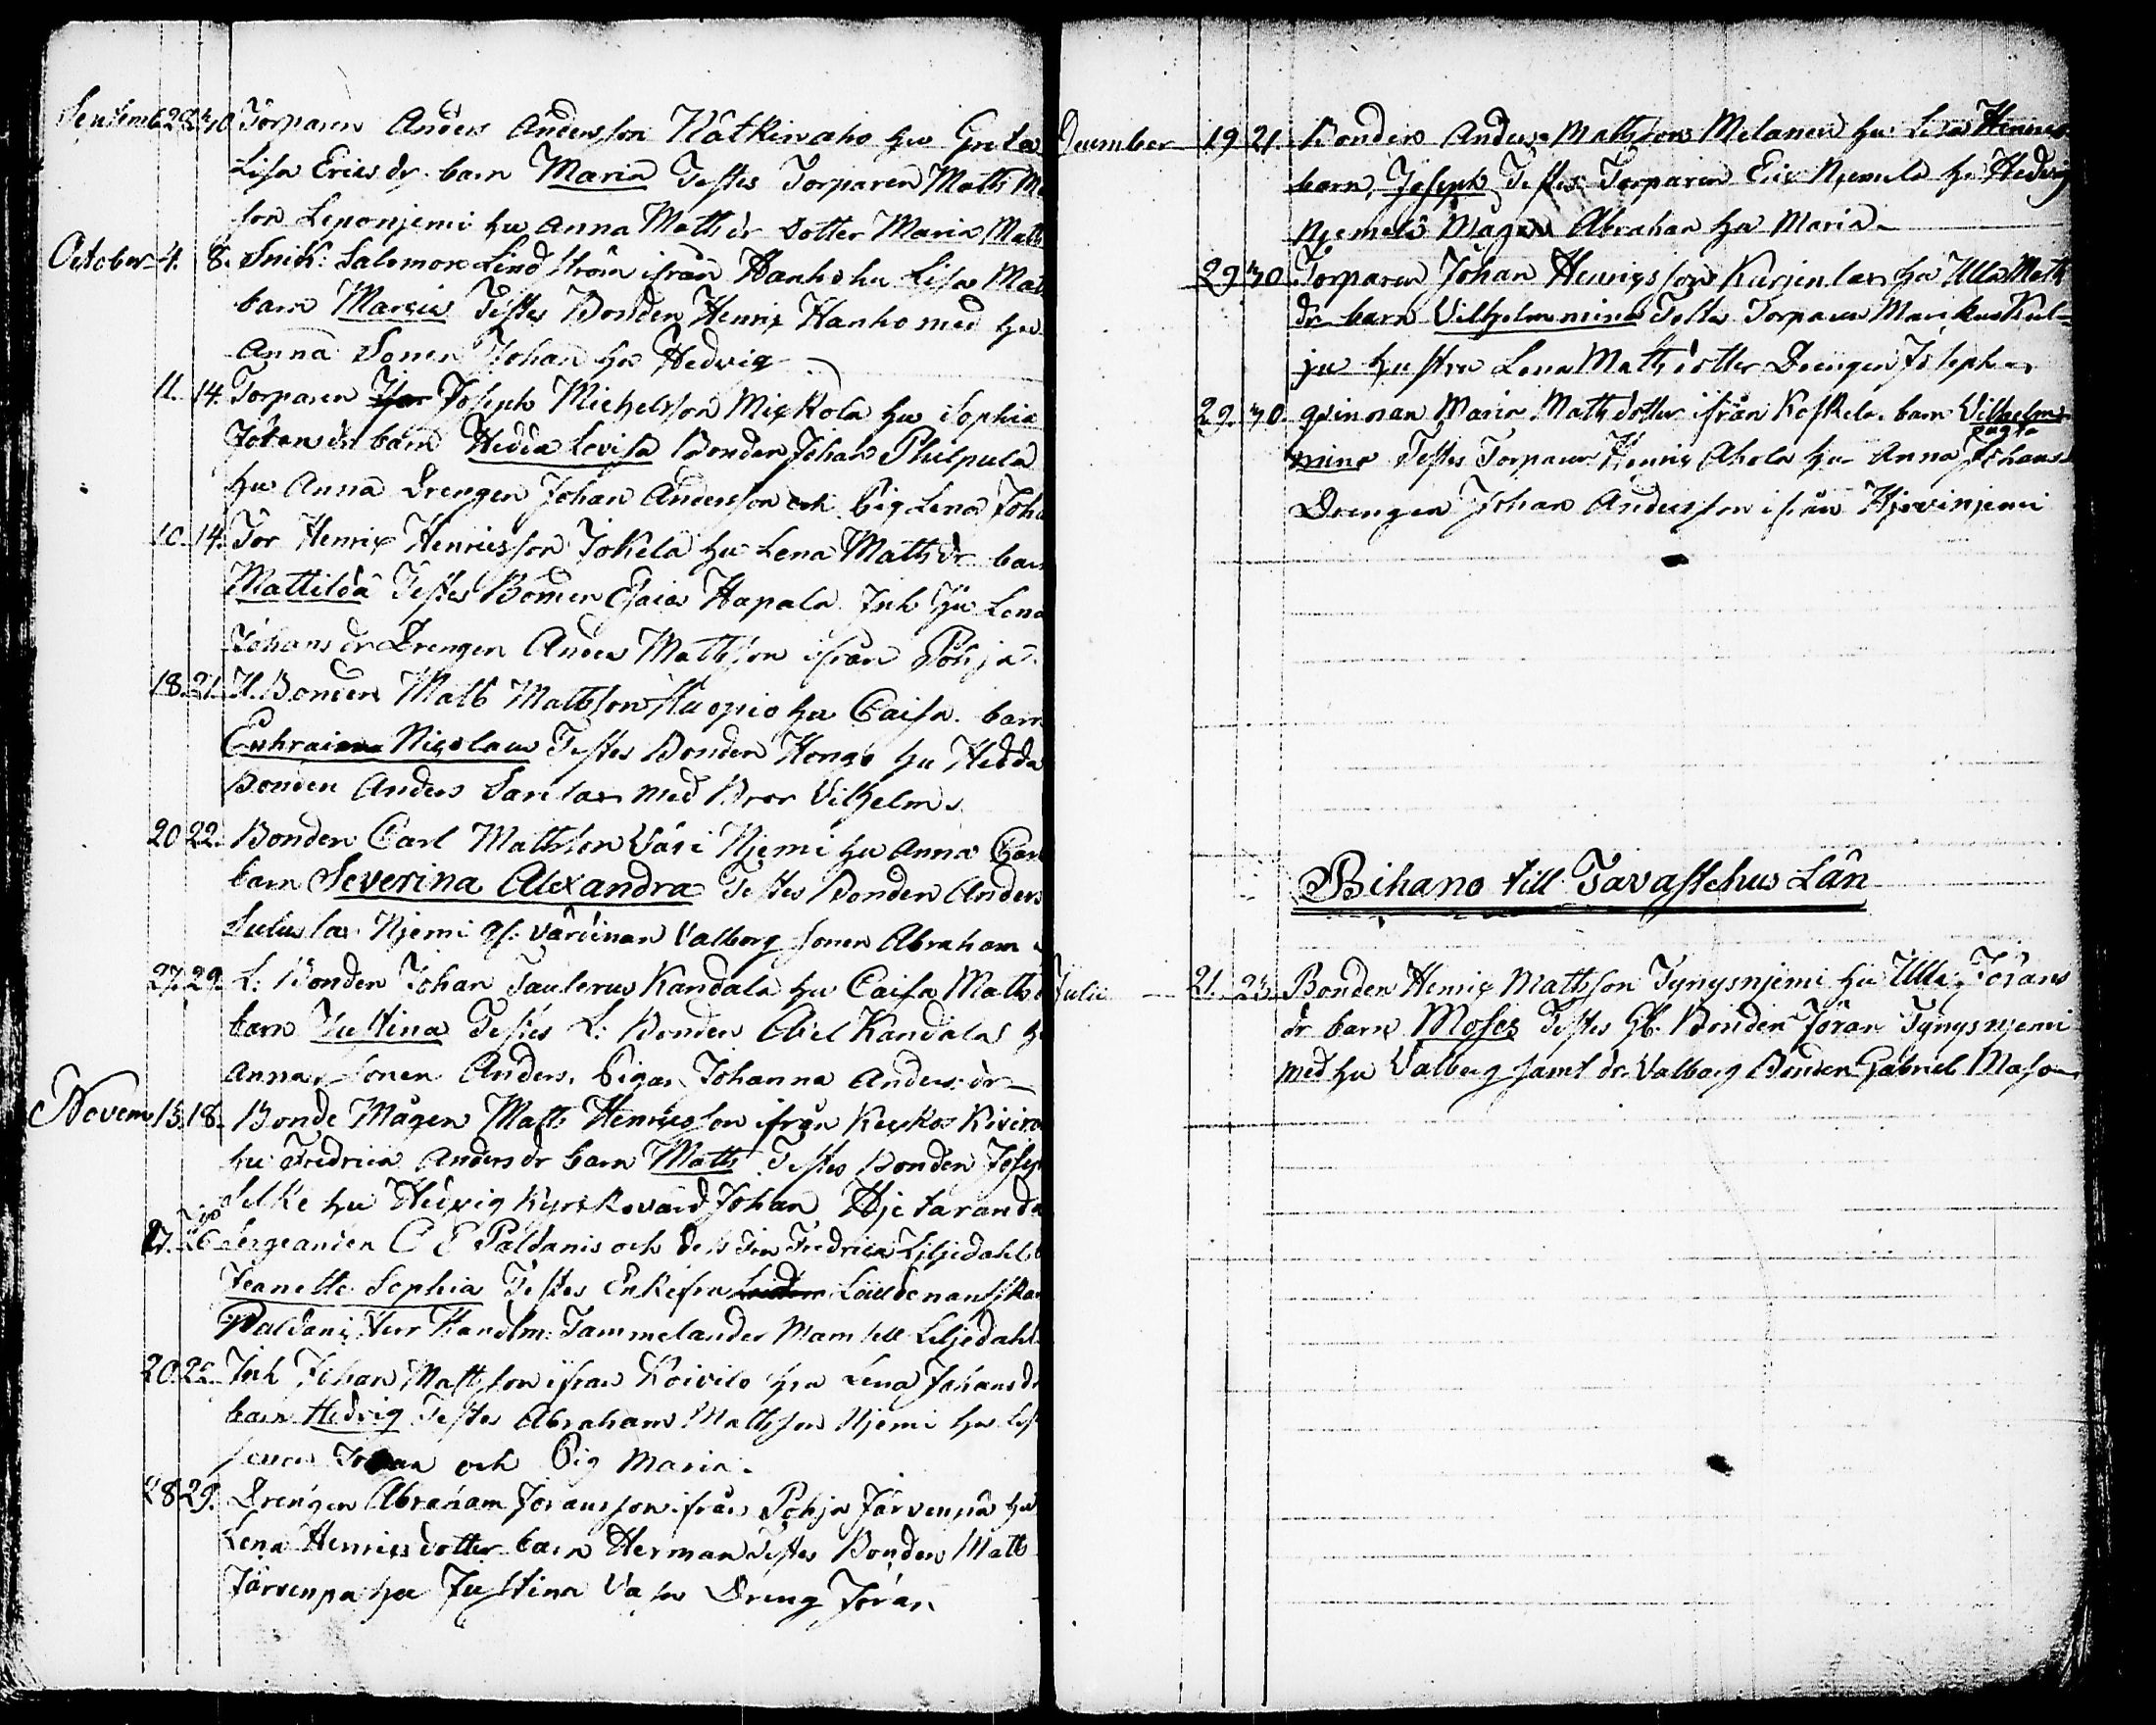 Septemb 29. 30 Torparen Anders Andersson Nätkinaho hu Greta
Lisa Ericsdr. barn Maria Testes Torparen Matts
son Leponjemi hu Anna Matts dr dotter Maria Matts
October 4. 8. Snik: Salomon Lindström ifrån Hanho hu Lisa Mat
barn Marcus Testes Bonden Henrix Hanho med hu
Anna Sonen Johan hu Hedvig
11. 14. Torparen Joseph Michelsson Mixkola hu Sophia
Johans dr barn Hedda Lovisa Bonden Johan Philpula
hu Anna Drengen Johan Andersson och Pig Lena Joha
10. 14. Tor Henrix Henricsson Jokela hu Lena Matts dr barn
Mattilda Testes Bonden Esaias Hapala Inh hu Lena
Johans dr Drengen Anders Mattsson ifrån Pohja
18. 21. H. Bonden Matts Mattsson Kuopio hu Caisa. barn
Ephraim Nicolaus Testes Bonden Hongo hu Hedda
Bonden Anders Sarelax med Bror Vilhelm
20 22. Bonden Carl Mattsson Väsi Njemi hu Anna Car
barn Severina Alexandra Testes Bonden Anders
Njemi gl. värdinan Valborg sonen Abraham
27. 29. L: Bonden Johan Taulerus Kandala hu Caisa Matts
barn Justina Testes L: Bonden Abel Kandala h
Anna, Sonen Anders, Pigan Johanna Anders dr
Novem 15. 18. Bonde Mågen Matts Henricsson ifrån Keuko
hu Fredrica Anders dr barn Matts Testes Bonden Joseph
Selke hu Hedvig Kyrkovärd Johan Hjetaranda
17. 26 Sergeanten C E Paldanis och dess Fru Fredrica Liljedahl b
Jeanette Sophia Testes Enkefru Löudenantskan
Paldani, Herr Handlm: Tammelander Mamsell Liljedahl
20. 22. Inh Johan Mattsson ifrån Koivilo hu Lena Johans dr
barn Hedvig Testes Abraham Mattsson Njemi hu Lis
sonen Johan och Pig Maria.
28 29. Drengen Abraham Joransson ifrån Pohja Järvenpä hu
Lena Henricsdotter barn Herman Testes Bonden Matts
Järvenpä hu Justina Dreng Jöran
December 19 21. Bonden Anders Mattsson Melanen hu Lisa Henrics
barn, Joseph Testes Torparen Eric Njemelä hu Hedvig
Njemelä Mågen Abraham hu Maria
29 30. Torparen Johan Henrigsson Kurjenlax hu Ulla Matts
dr barn Vilhelmmina Testes Torparen Marckus Kul-
ju hustru Lena Mattsdotter Drengen Joseph
29. 30. qvinnan Maria Mattsdotter ifrån Koskela. barn Vilhelm
oägta
mina Testes Torparen Henrix Ahola hu Anna Johans
Drengen Johan Andersson ifrån Hjevinjemi
Bihang till Tavastehus Län
Julii 21. 23. Bonden Henrix Mattsson Tyngsnjemi hu Ulla, Jörans
dr barn Moses Testes Gl. Bonden Jöran Tyngsnjemi
med hu Valborg samt dr. Valborg Bonden Gabriel Maso